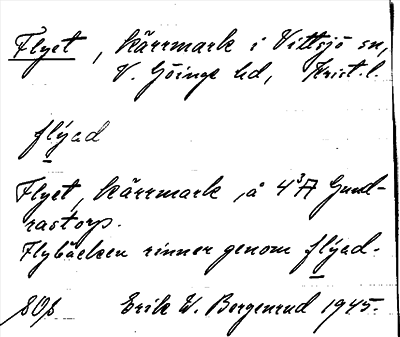 Flyet, kärrmark i Vittsjö sn,
V. Göinge hd, Krist. l.
flýad
Flyet, kärrmark, å 4³A Gund-
rastorp.
Flybäcken rinner genom flýad.
Erik W. Bergenrud 1945.